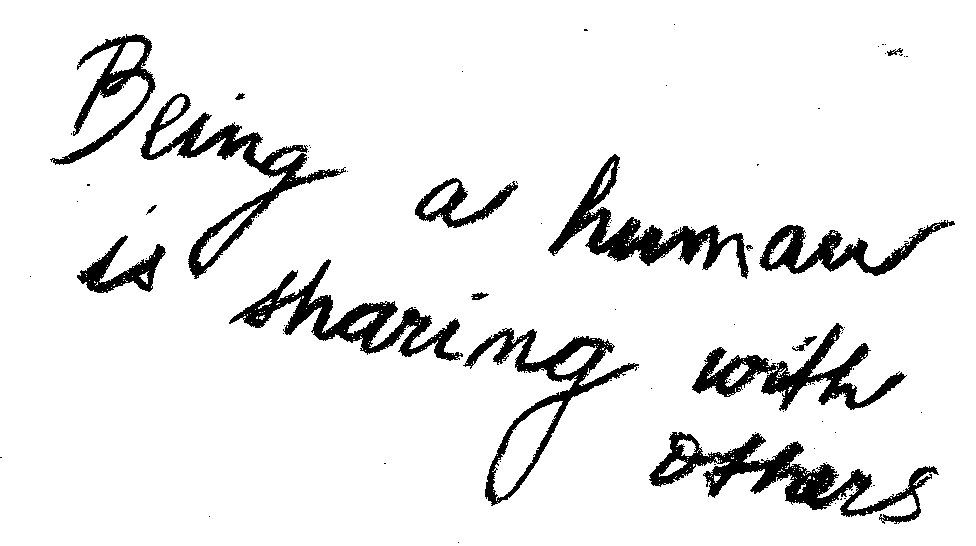 Being a human
is sharing with
others